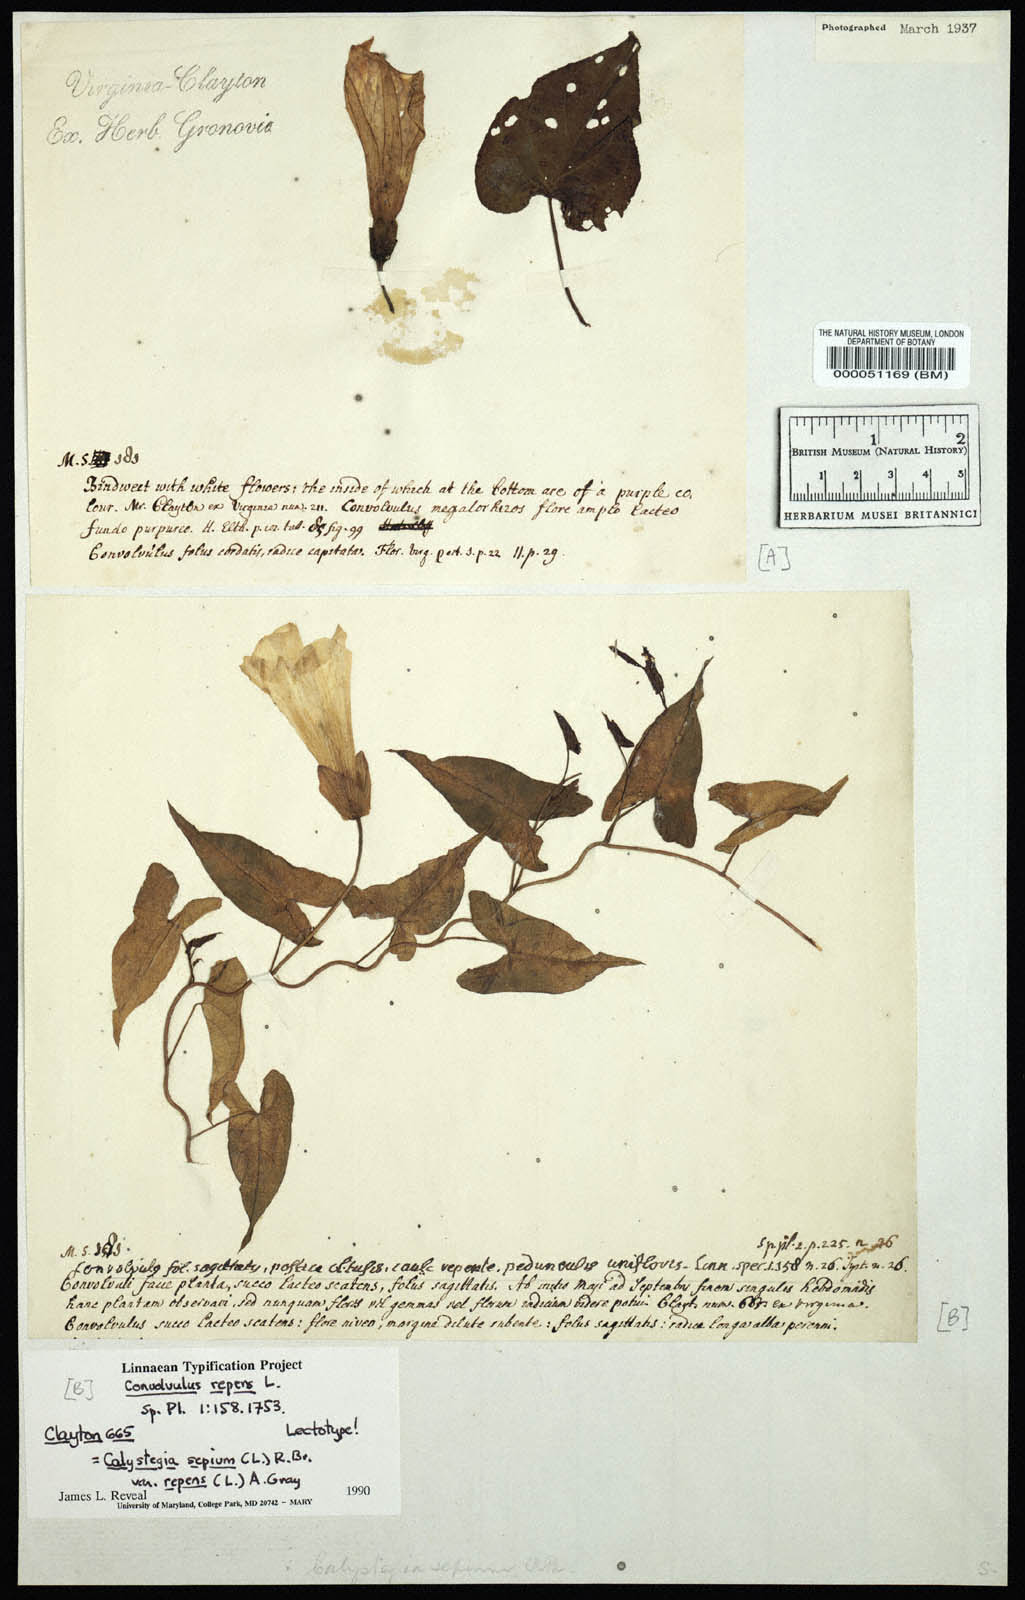 Photographed March 1937
Virginia-Clayton
Ex. Herb. Gronovii
THE NATURAL HISTORY MUSEUM, LONDON
DEPARTMENT OF BOTANY
000051169 (BM)
1 2
BRITISH MUSEUM (NATURAL HISTORY)
1 2 3 4 5
HERBARIUM MUSEI BRITANNICI
[A]
M.S.
Bindweet with white flowers: the inside of which at the bottom are of a purple co
lour. Mr. Clayton ex Virginia num. 211. Convolvulus megalorhizos flore amplo lacteo
fundo purpureo. H. Elth. p. 101 tab. fig. 99
Convolvulus foliis cordatis, radice capitata. Flor. Virg. part. 3. p. 22 II. p. 29.
M.S.
Sp. pl. 2. p. 225. n. 26
Convolvulus fol. sagittatis, postice obtusis, caule repente, pedunculis unifloris. Linn. spec. 1.158 n. 26. Syst. n. 26.
Convolvuli facie planta, succo lacteo scatens, foliis sagittatis. Ab initio Maji ad Septembr. finem singulis hebdomadis
hanc plantam observavi, sed nunquam floris vel gemmas vel florum indicium videre potui. Clayt. num. 665 ex Virginia.
Convolvulus succo lacteo scatens: flore niveo, margine dilute rubente: foliis sagittatis: radice longa alba perenni.
[B]
Linnaean Typification Project
[B] Convolvulus repens L.
Sp. Pl. 1:158. 1753.
Clayton 665 Lectotype!
= Calystegia sepium (L.) R.Br.
var. repens (L.) A. Gray
James L. Reveal 1990
University of Maryland, College Park, MD 20742 – MARY
Calystegia sepium
S.